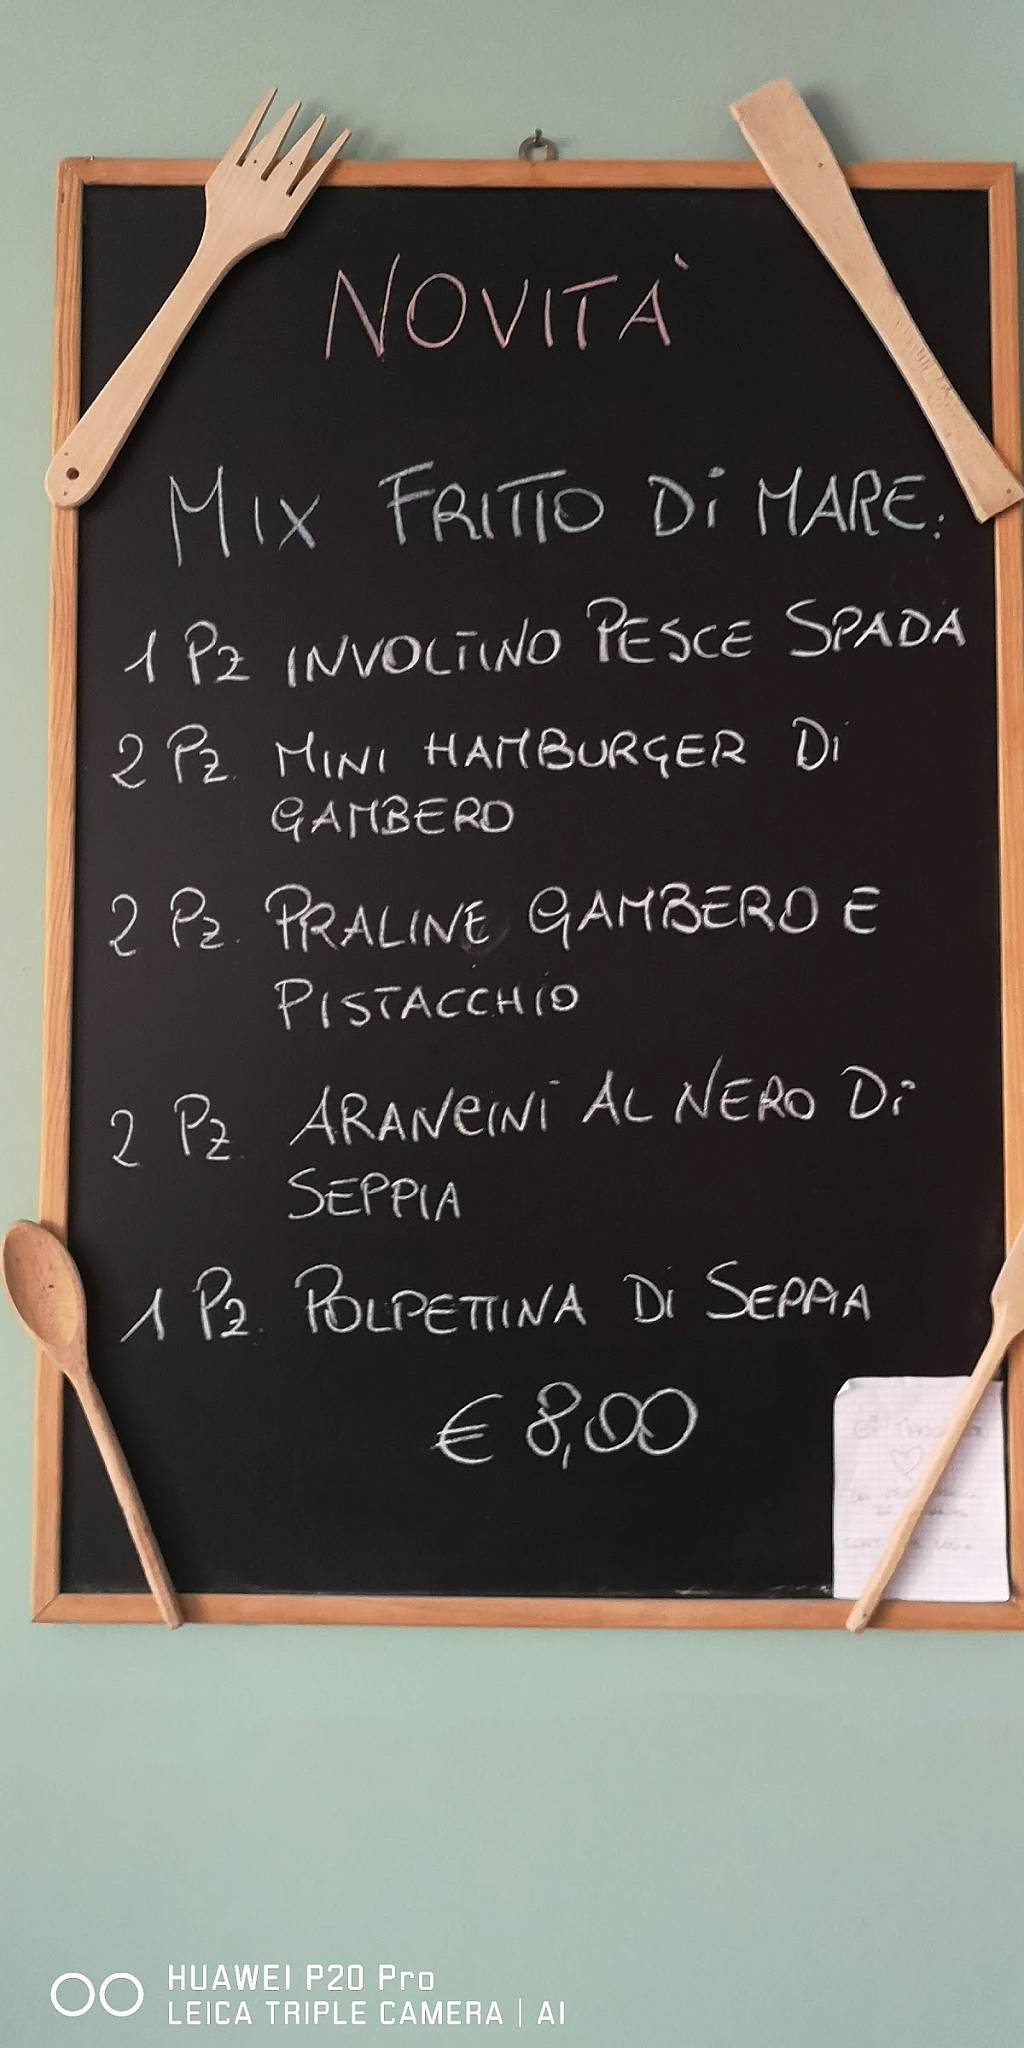 NOVITÀ
MIX FRITTO Di MARE:
1 Pz INVOLTINO PESCE SPADA
2 Pz. MINI HAMBURGER Di
GAMBERO
2 Pz. PRALINE GAMBERO E
PISTACCHIO
2 Pz. ARANCINI AL NERO Di
SEPPIA
1 Pz. POLPETTINA Di SEPPIA
€ 8,00
HUAWEI P20 Pro
LEICA TRIPLE CAMERA | AI